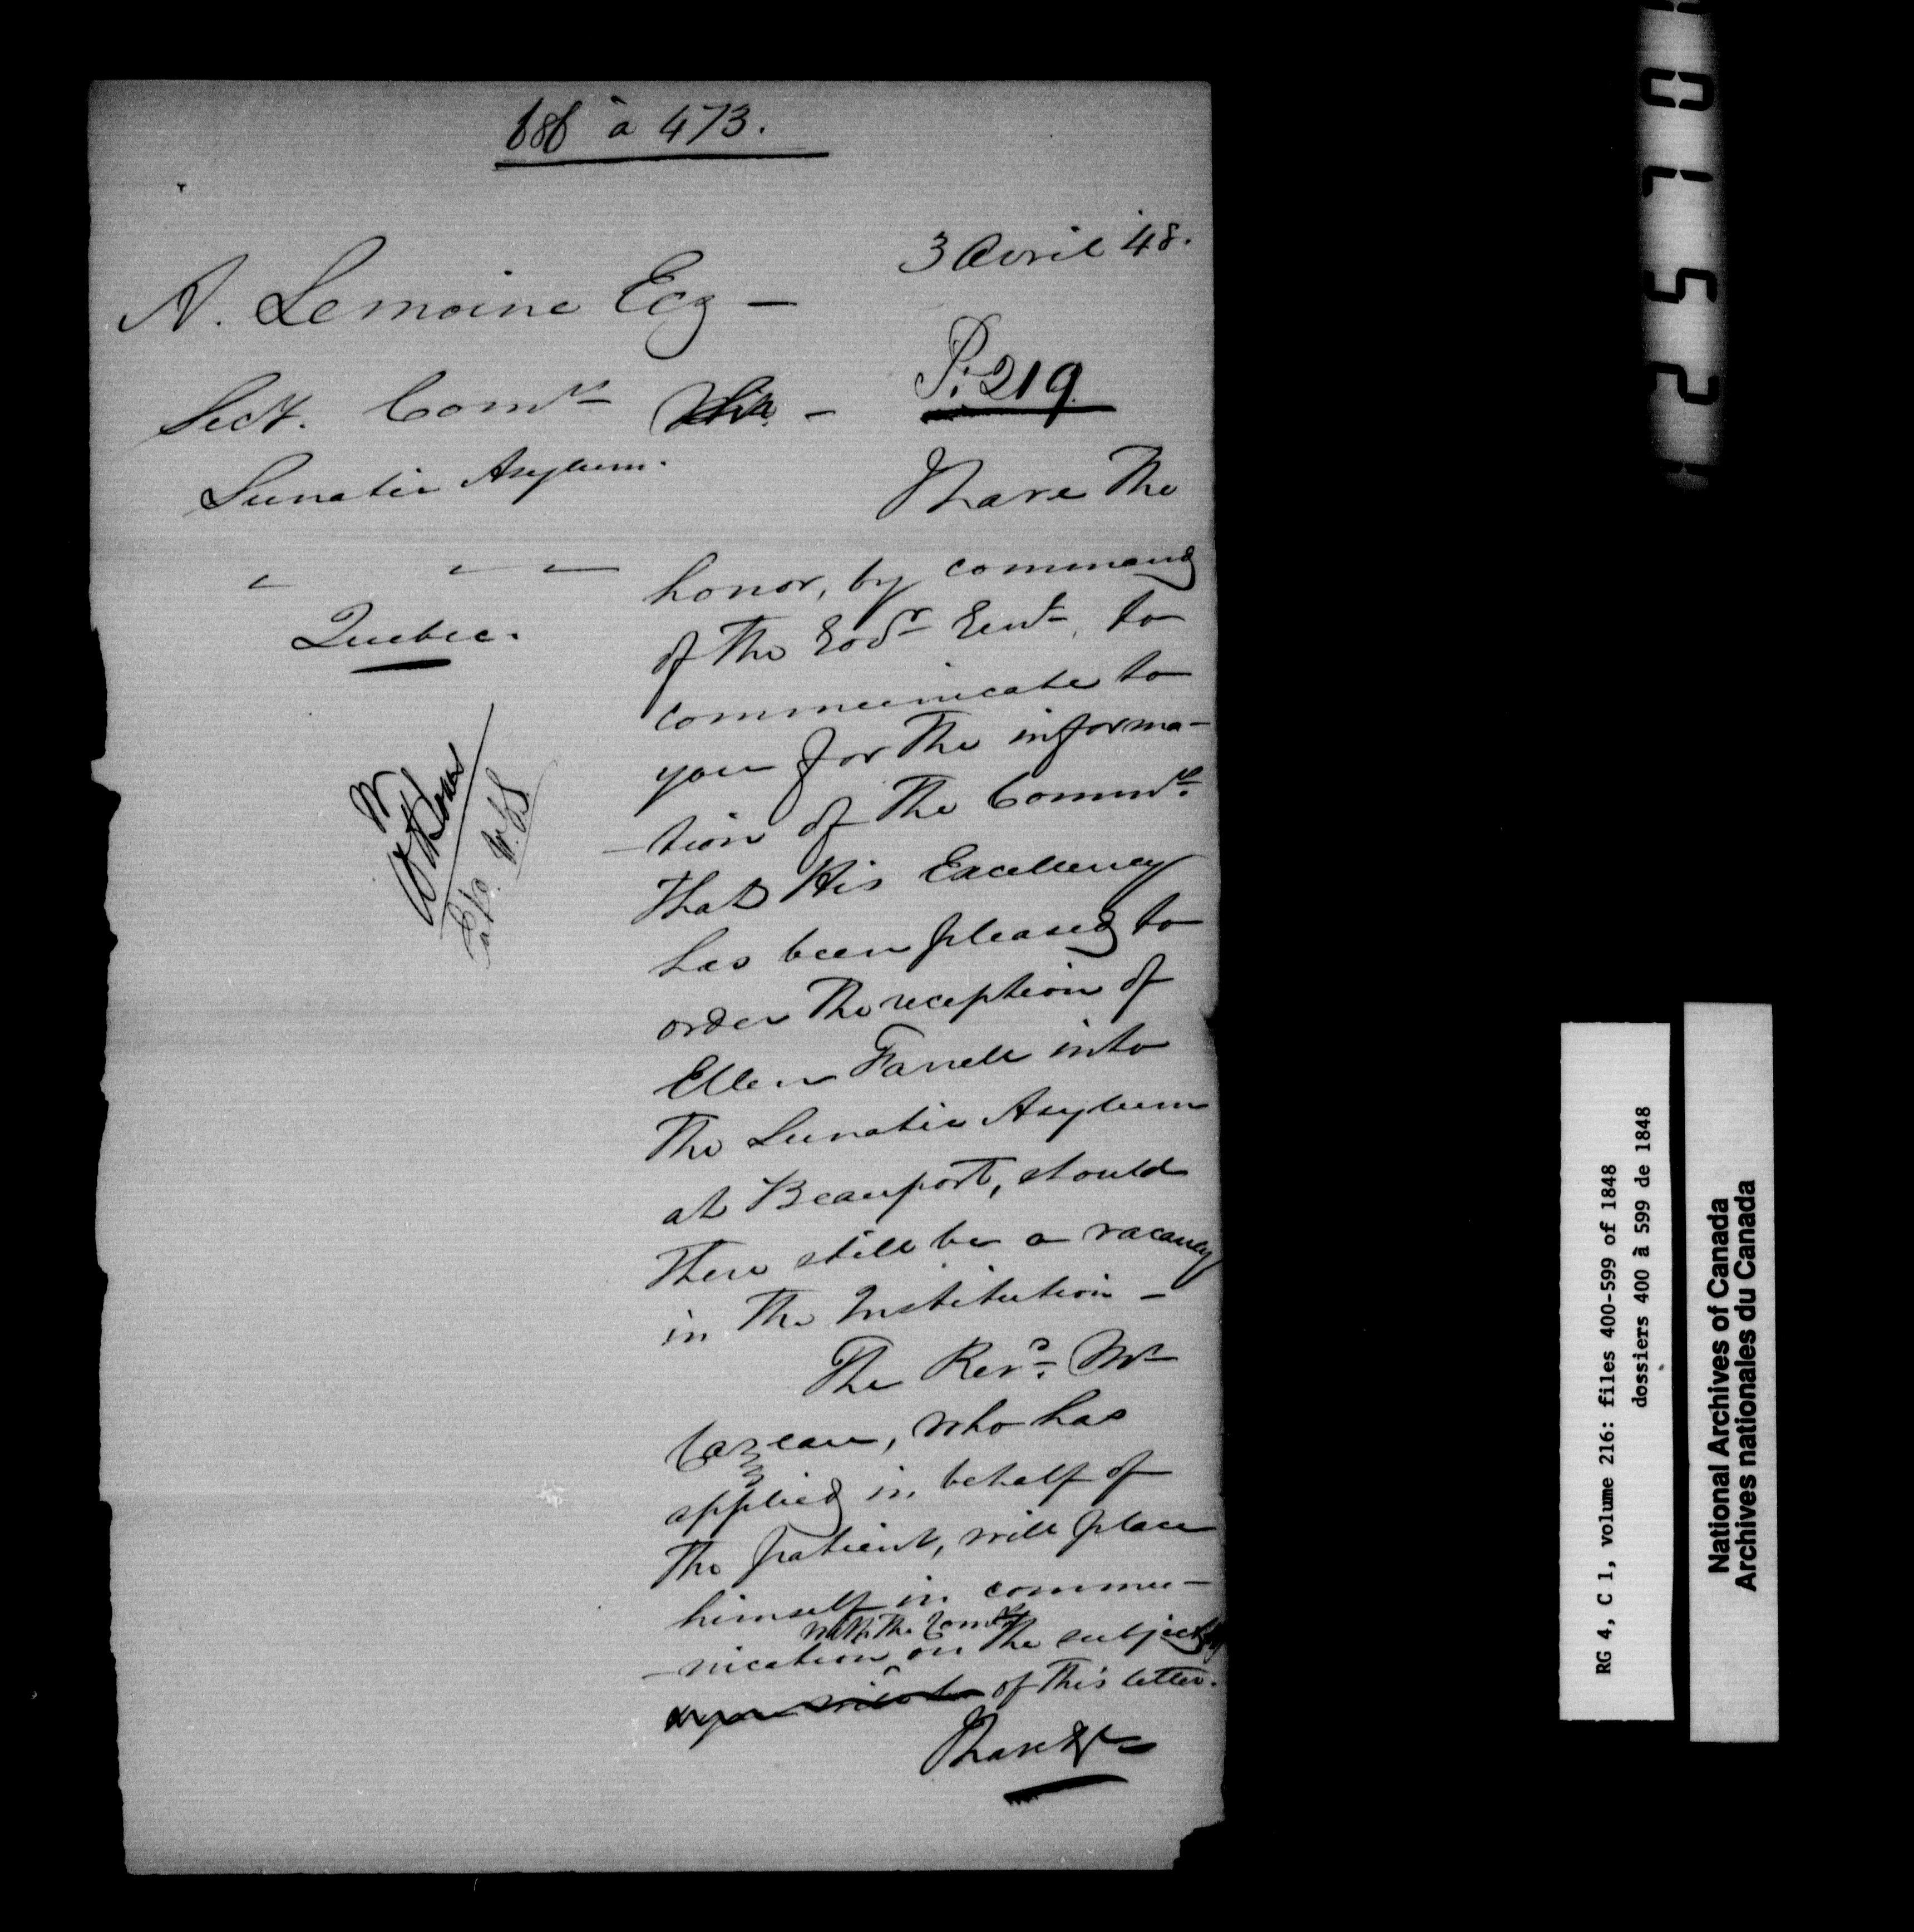 à 473.
3 Avril 48.
A. Lemoine Ecq —
P. 219.
Sect. Comrs —
Lunatic Asylum.
I have the
honor, by command
Quebec.
of the Govr Genl, to
communicate to
you for the informa-
-tion of the Commrs
that His Excellency
has been pleased to
order the reception of
Ellen Farrell into
the Lunatic Asylum
at Beauport, should
there still be a vacancy
in the Institution —
The Revd. Mr
Cazeau, who has
applied in behalf of
the patient, will place
himself in commu-
with the Comrs
-nication on the subject
of this letter.
I have &c
0752
RG 4, C 1, volume 216: files 400-599 of 1848
dossiers 400 à 599 de 1848
National Archives of Canada
Archives nationales du Canada